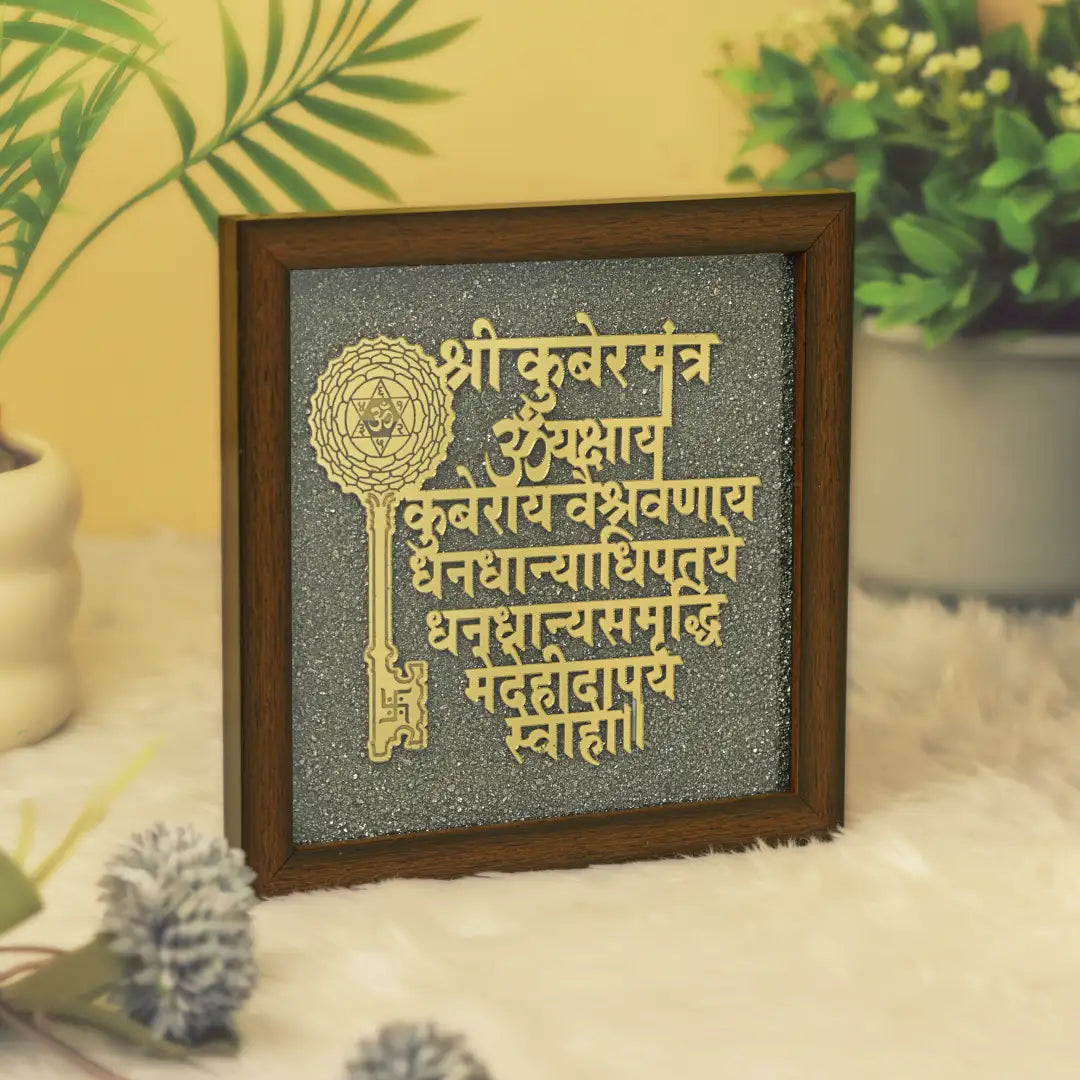 श्री कुबेर मंत्र
ॐ यक्षाय
कुबेराय वैश्रवणाय
धनधान्याधिपतये
धनधान्यसमृद्धि
मे देही दापय
स्वाहा॥
ॐ